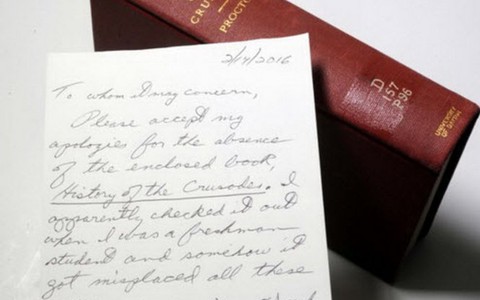 2/14/2016
To whom it may concern,
Please accept my
apologies for the absence
of the enclosed book,
History of the Crusades. I
apparently checked it out
when I was a freshman
student and somehow it
got misplaced all these
CRU
PROCTO
D
157
P96
UNIVERSITY
OF DAYTON